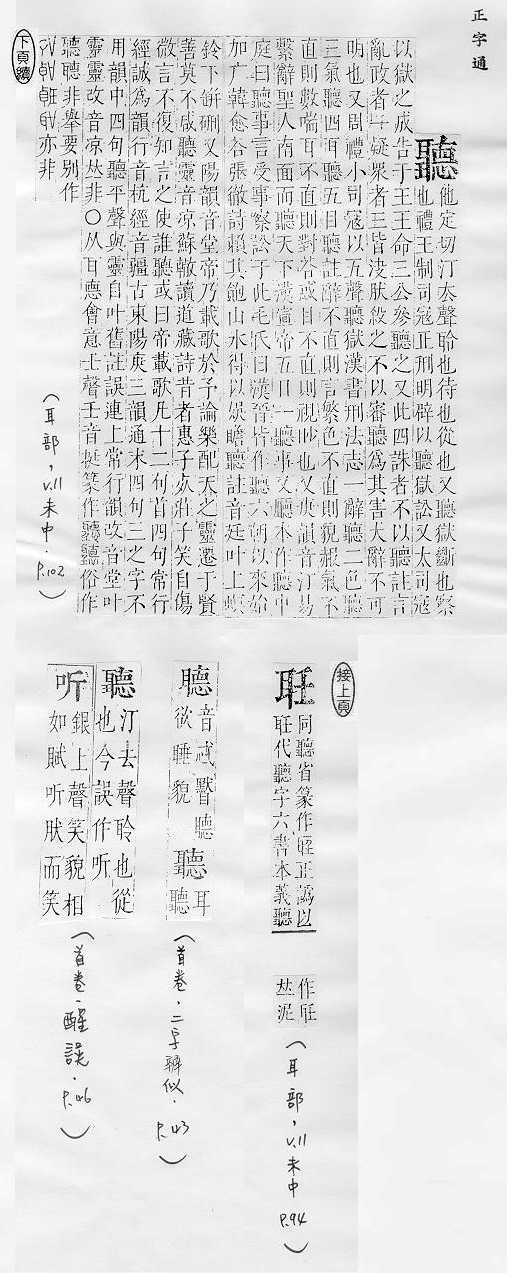 正字通
聽
他定切汀去聲聆也待也從也又聽獄斷也察
也禮王制司寇正刑明辟以聽獄訟又大司寇
以獄之成告于王王命三公參聽之又此四誅者不以聽註言
亂政者與疑眾者三皆決然殺之不以審聽為其害大辭不可
明也又周禮小司寇以五聲聽獄漢書刑法志一辭聽二色聽
三氣聽四耳聽五目聽註辭不直則言繁色不直則貌赧氣不
直則數喘耳不直則對答或目不直則視眊也又庚韻音汀易
繫辭聖人南面而聽天下漢宣帝五日一聽事又聽本作聽中
庭曰聽事言受事察訟于此毛氏曰漢晉皆作聽六朝以來始
加广韓愈答張徹詩賴其飽山水得以娛瞻聽註音廷叶上
鈴下缾硎又陽韻音堂帝乃載歌於予論樂配天之靈遷于賢
善莫不咸聽靈音凉蘇轍讀道藏詩昔者惠子死莊子笑自傷
微言不復知言之使誰聽或曰帝載歌凡十二句首四句常行
經誠為韻行音杭經音疆古東陽庚三韻通末四句三之字不
用韻中四句聽平聲與靈自叶舊註誤連上常行韻改音堂叶
靈靈改音凉丛非○从耳悳會意𡈼聲𡈼音挺篆作聽俗作
聼聴非舉要別作
亦非
下頁續
(耳部,v.11未中.P.102)
接上頁
耵
同聽省篆作正譌以
代聽字六書本義聽
作
丛泥
(耳部,v.11未中P.94)
聽
音忒
欲睡貌
聽
耳
聽
(首卷,二字辨似.P.43)
聽
汀去聲聆也從
也今誤作听
听
銀上聲笑貌相
如賦听肰而笑
(首卷.醒誤.P.46)